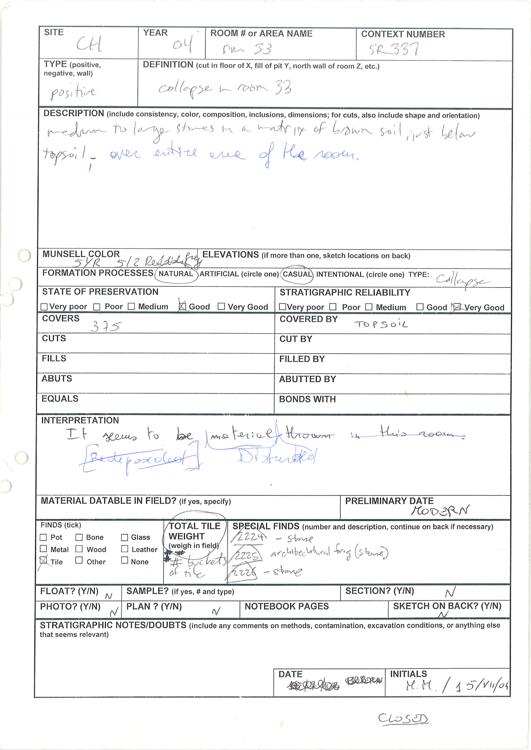 SITE CH
YEAR 04
ROOM # or AREA NAME rm 33
CONTEXT NUMBER SR337
TYPE (positive, negative, wall) positive
DEFINITION (cut in floor of X, fill of pit Y, north wall of room Z, etc.)
collapse in room 33
DESCRIPTION (include consistency, color, composition, inclusions, dimensions; for cuts, also include shape and orientation)
medium to large stones in a matrix of brown soil, just below
topsoil, over entire area of the room.
MUNSELL COLOR 5YR 5/2 Reddish gray
ELEVATIONS (if more than one, sketch locations on back)
FORMATION PROCESSES NATURAL ARTIFICIAL (circle one) CASUAL INTENTIONAL (circle one) TYPE: Collapse
STATE OF PRESERVATION
Very poor Poor Medium Good Very Good
STRATIGRAPHIC RELIABILITY
Very poor Poor Medium Good Very Good
COVERS 375
COVERED BY TOPSOIL
CUTS
CUT BY
FILLS
FILLED BY
ABUTS
ABUTTED BY
EQUALS
BONDS WITH
INTERPRETATION
It seems to be material thrown in this room.
Redeposited Disturbed
MATERIAL DATABLE IN FIELD? (if yes, specify)
PRELIMINARY DATE MODERN
FINDS (tick)
Pot Bone Glass
Metal Wood Leather
Tile Other None
TOTAL TILE WEIGHT (weigh in field)
# buckets of tile
SPECIAL FINDS (number and description, continue on back if necessary)
2224 - stone
2225 architectural frag (stone)
2226 - stone
FLOAT? (Y/N) N
SAMPLE? (if yes, # and type)
SECTION? (Y/N) N
PHOTO? (Y/N) N
PLAN ? (Y/N) N
NOTEBOOK PAGES
SKETCH ON BACK? (Y/N) N
STRATIGRAPHIC NOTES/DOUBTS (include any comments on methods, contamination, excavation conditions, or anything else
that seems relevant)
DATE
INITIALS M.M. / 15/VII/04
CLOSED